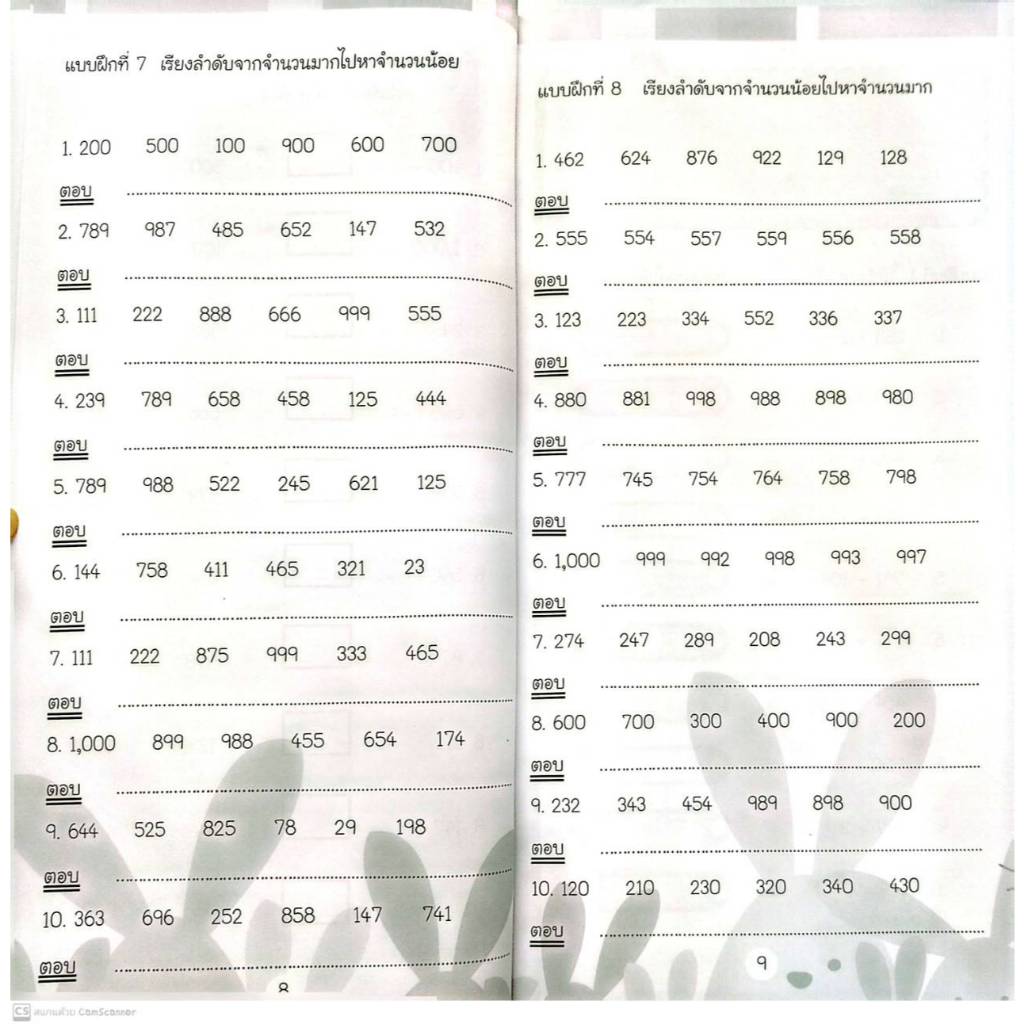 แบบฝึกที่ 7 เรียงลำดับจากจำนวนมากไปหาจำนวนน้อย
1. 200 500 100 900 600 700
ตอบ
2. 789 987 485 652 147 532
ตอบ
3. 111 222 888 666 999 555
ตอบ
4. 239 789 658 458 125 444
ตอบ
5. 789 988 522 245 621 125
ตอบ
6. 144 758 411 465 321 23
ตอบ
7. 111 222 875 999 333 465
ตอบ
8. 1,000 899 988 455 654 174
ตอบ
9. 644 525 825 78 29 198
ตอบ
10. 363 696 252 858 147 741
ตอบ
8
แบบฝึกที่ 8 เรียงลำดับจากจำนวนน้อยไปหาจำนวนมาก
1. 462 624 876 922 129 128
ตอบ
2. 555 554 557 559 556 558
ตอบ
3. 123 223 334 552 336 337
ตอบ
4. 880 881 998 988 898 980
ตอบ
5. 777 745 754 764 758 798
ตอบ
6. 1,000 999 992 998 993 997
ตอบ
7. 274 247 289 208 243 299
ตอบ
8. 600 700 300 400 900 200
ตอบ
9. 232 343 454 989 898 900
ตอบ
10. 120 210 230 320 340 430
ตอบ
9
CS สแกนด้วย CamScanner